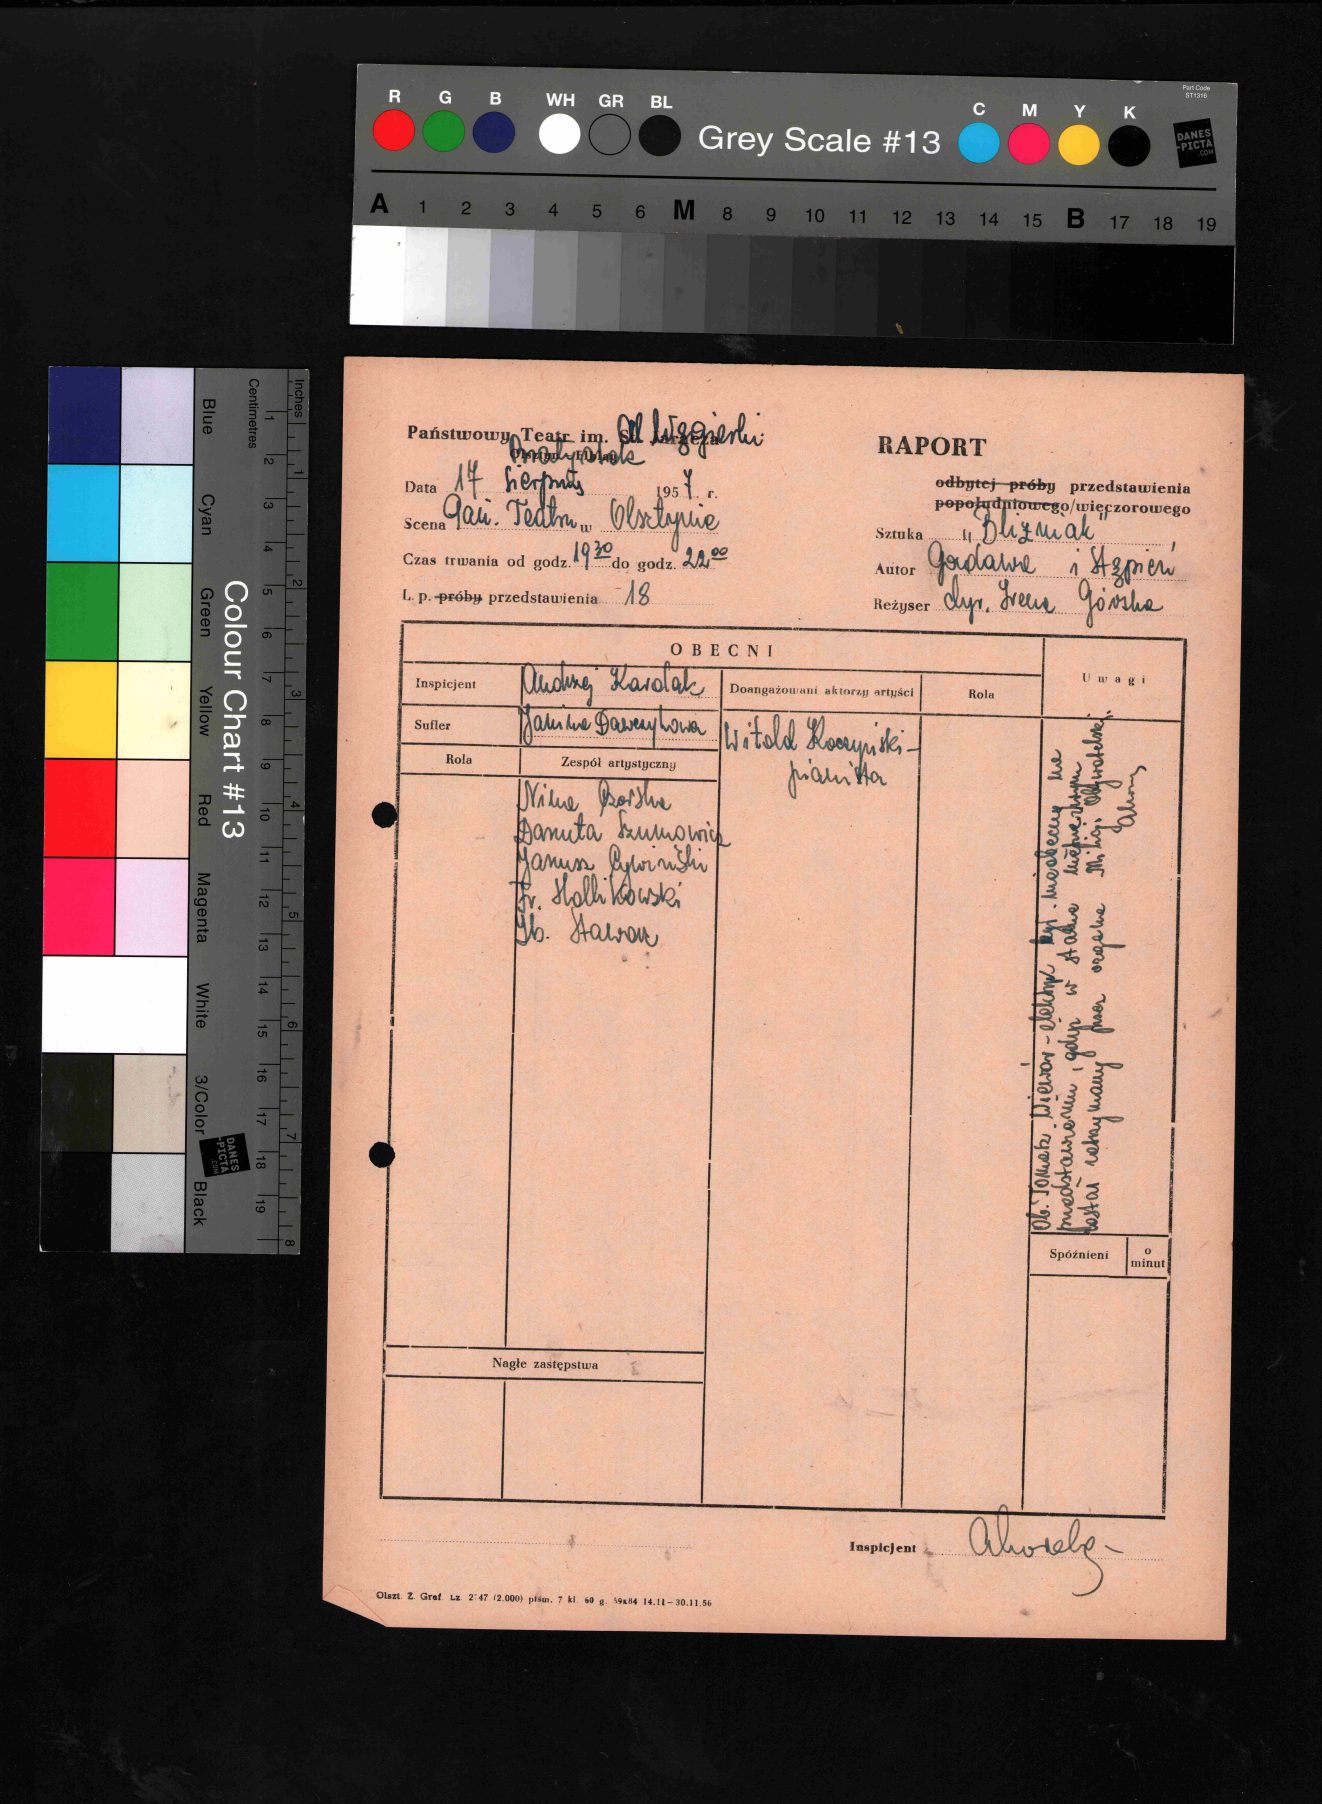 R G B WH GR BL
Grey Scale #13
C M Y K
Part Code
ST1316
DANES
-PICTA
.COM
A 1 2 3 4 5 6 M 8 9 10 11 12 13 14 15 B 17 18 19
Colour Chart #13
Blue Cyan Green Yellow Red Magenta White 3/Color Black
Centimetres
1 2 3 4 5 6 7 8 9 10 11 12 13 14 15 16 17 18 19
Inches
1 2 3 4 5 6 7 8
DANES
-PICTA
.COM
Państwowy Teatr im. St. Jaracza Al Węgierki
Białystok
Data 17 sierpnia 1957 r.
Scena Pań. Teatru w Olsztynie
Czas trwania od godz. 19 30 do godz. 22 00
L. p. próby przedstawienia 18
RAPORT
odbytej próby przedstawienia
popołudniowego/wieczorowego
Sztuka „Bliźniak"
Autor Gozdawa i Stępień
Reżyser dyr. Irena Górska
OBECNI
Uwagi
Inspicjent Andrzej Karolak
Doangażowani aktorzy artyści
Rola
Sufler Janina
Witold
pianista
Rola
Zespół artystyczny
Nina
Danuta Szumowicz
Janusz Cywiński
Fr.
Zb. Stawarz
Ob. Tomasz - elektryk był nieobecny na
przedstawieniu, gdyż w stanie nietrzeźwym
został zatrzymany przez organa Milicji Obywatelskiej.
Spóźnieni
o
minut
Nagłe zastępstwa
Inspicjent
Olszt. Z. Graf. Lz. 2747 (2.000) piśm. 7 kl. 60 g. 59x84 14.11—30.11.56